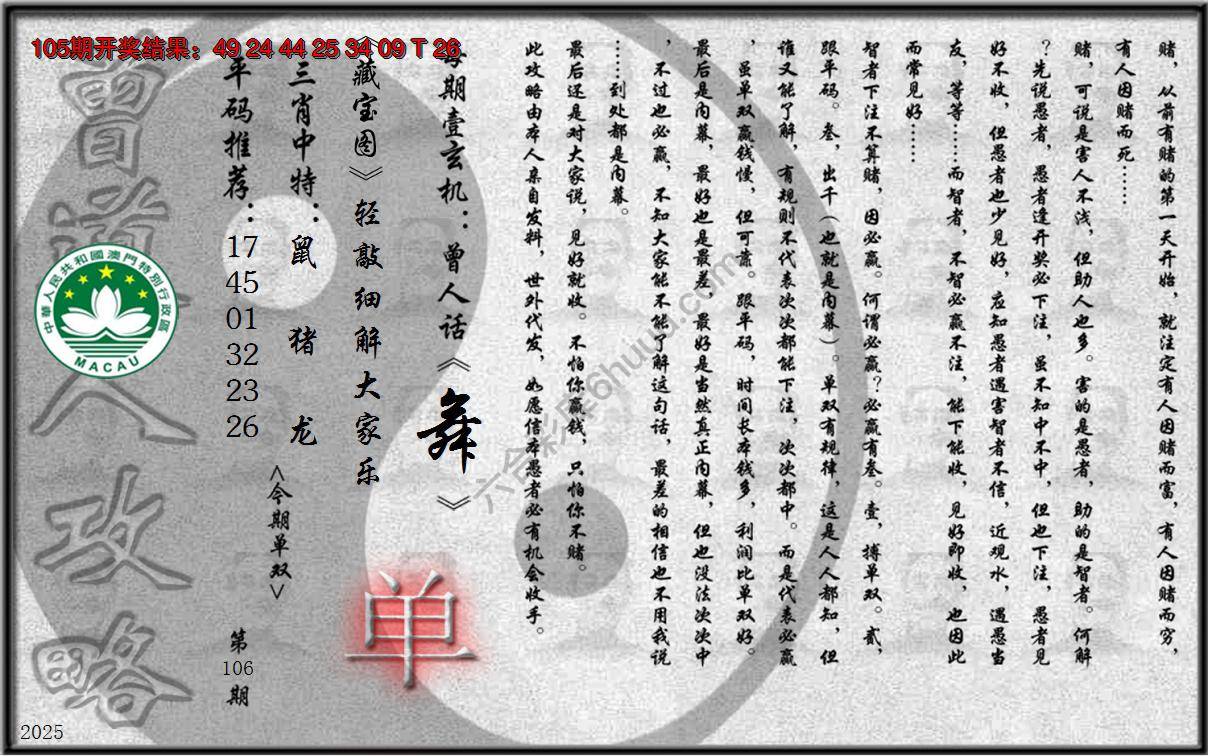 105期开奖结果：49 24 44 25 34 09 T 26
赌，从前有赌的第一天开始，就注定有人因赌而富，有人因赌而穷，
有人因赌而死……
赌，可说是害人不浅，但助人也多。害的是愚者，助的是智者。何解
？先说愚者，愚者逢开奖必下注，虽不知中不中，但也下注，愚者见
好不收，但愚者也少见好，应知愚者遇害智者不信，近观水，遇愚当
友，等等……而智者，不智必赢不注，能下能收，见好即收，也因此
而常见好……
智者下注不算赌，因必赢。何谓必赢？必赢有叁。壹，搏单双。贰，
跟平码。叁，出千（也就是内幕）。单双有规律，这是人人都知，但
谁又能了解，有规则不代表次次都能下注，次次都中。而是代表必赢
，虽单双赢钱慢，但可靠。跟平码，时间长本钱多，利润比单双好。
最后是内幕，最好也是最差，最好是当然真正内幕，但也没法次次中
，不过也必赢，不知大家能不能了解这句话，最差的相信也不用我说
……到处都是内幕。
最后还是对大家说，见好就收。不怕你赢钱，只怕你不赌。
此攻略由本人亲自发料，世外代发，如愿信本愚者必有机会收手。
每期壹玄机：曾人话《舞》
《藏宝图》轻敲细解大家乐
三肖中特：鼠 猪 龙
平码推荐：17 45 01 32 23 26
<今期单双>
单
第106期
曾道人攻略
中華人民共和國澳門特別行政區
MACAU
六合彩库6huuu.com
2025